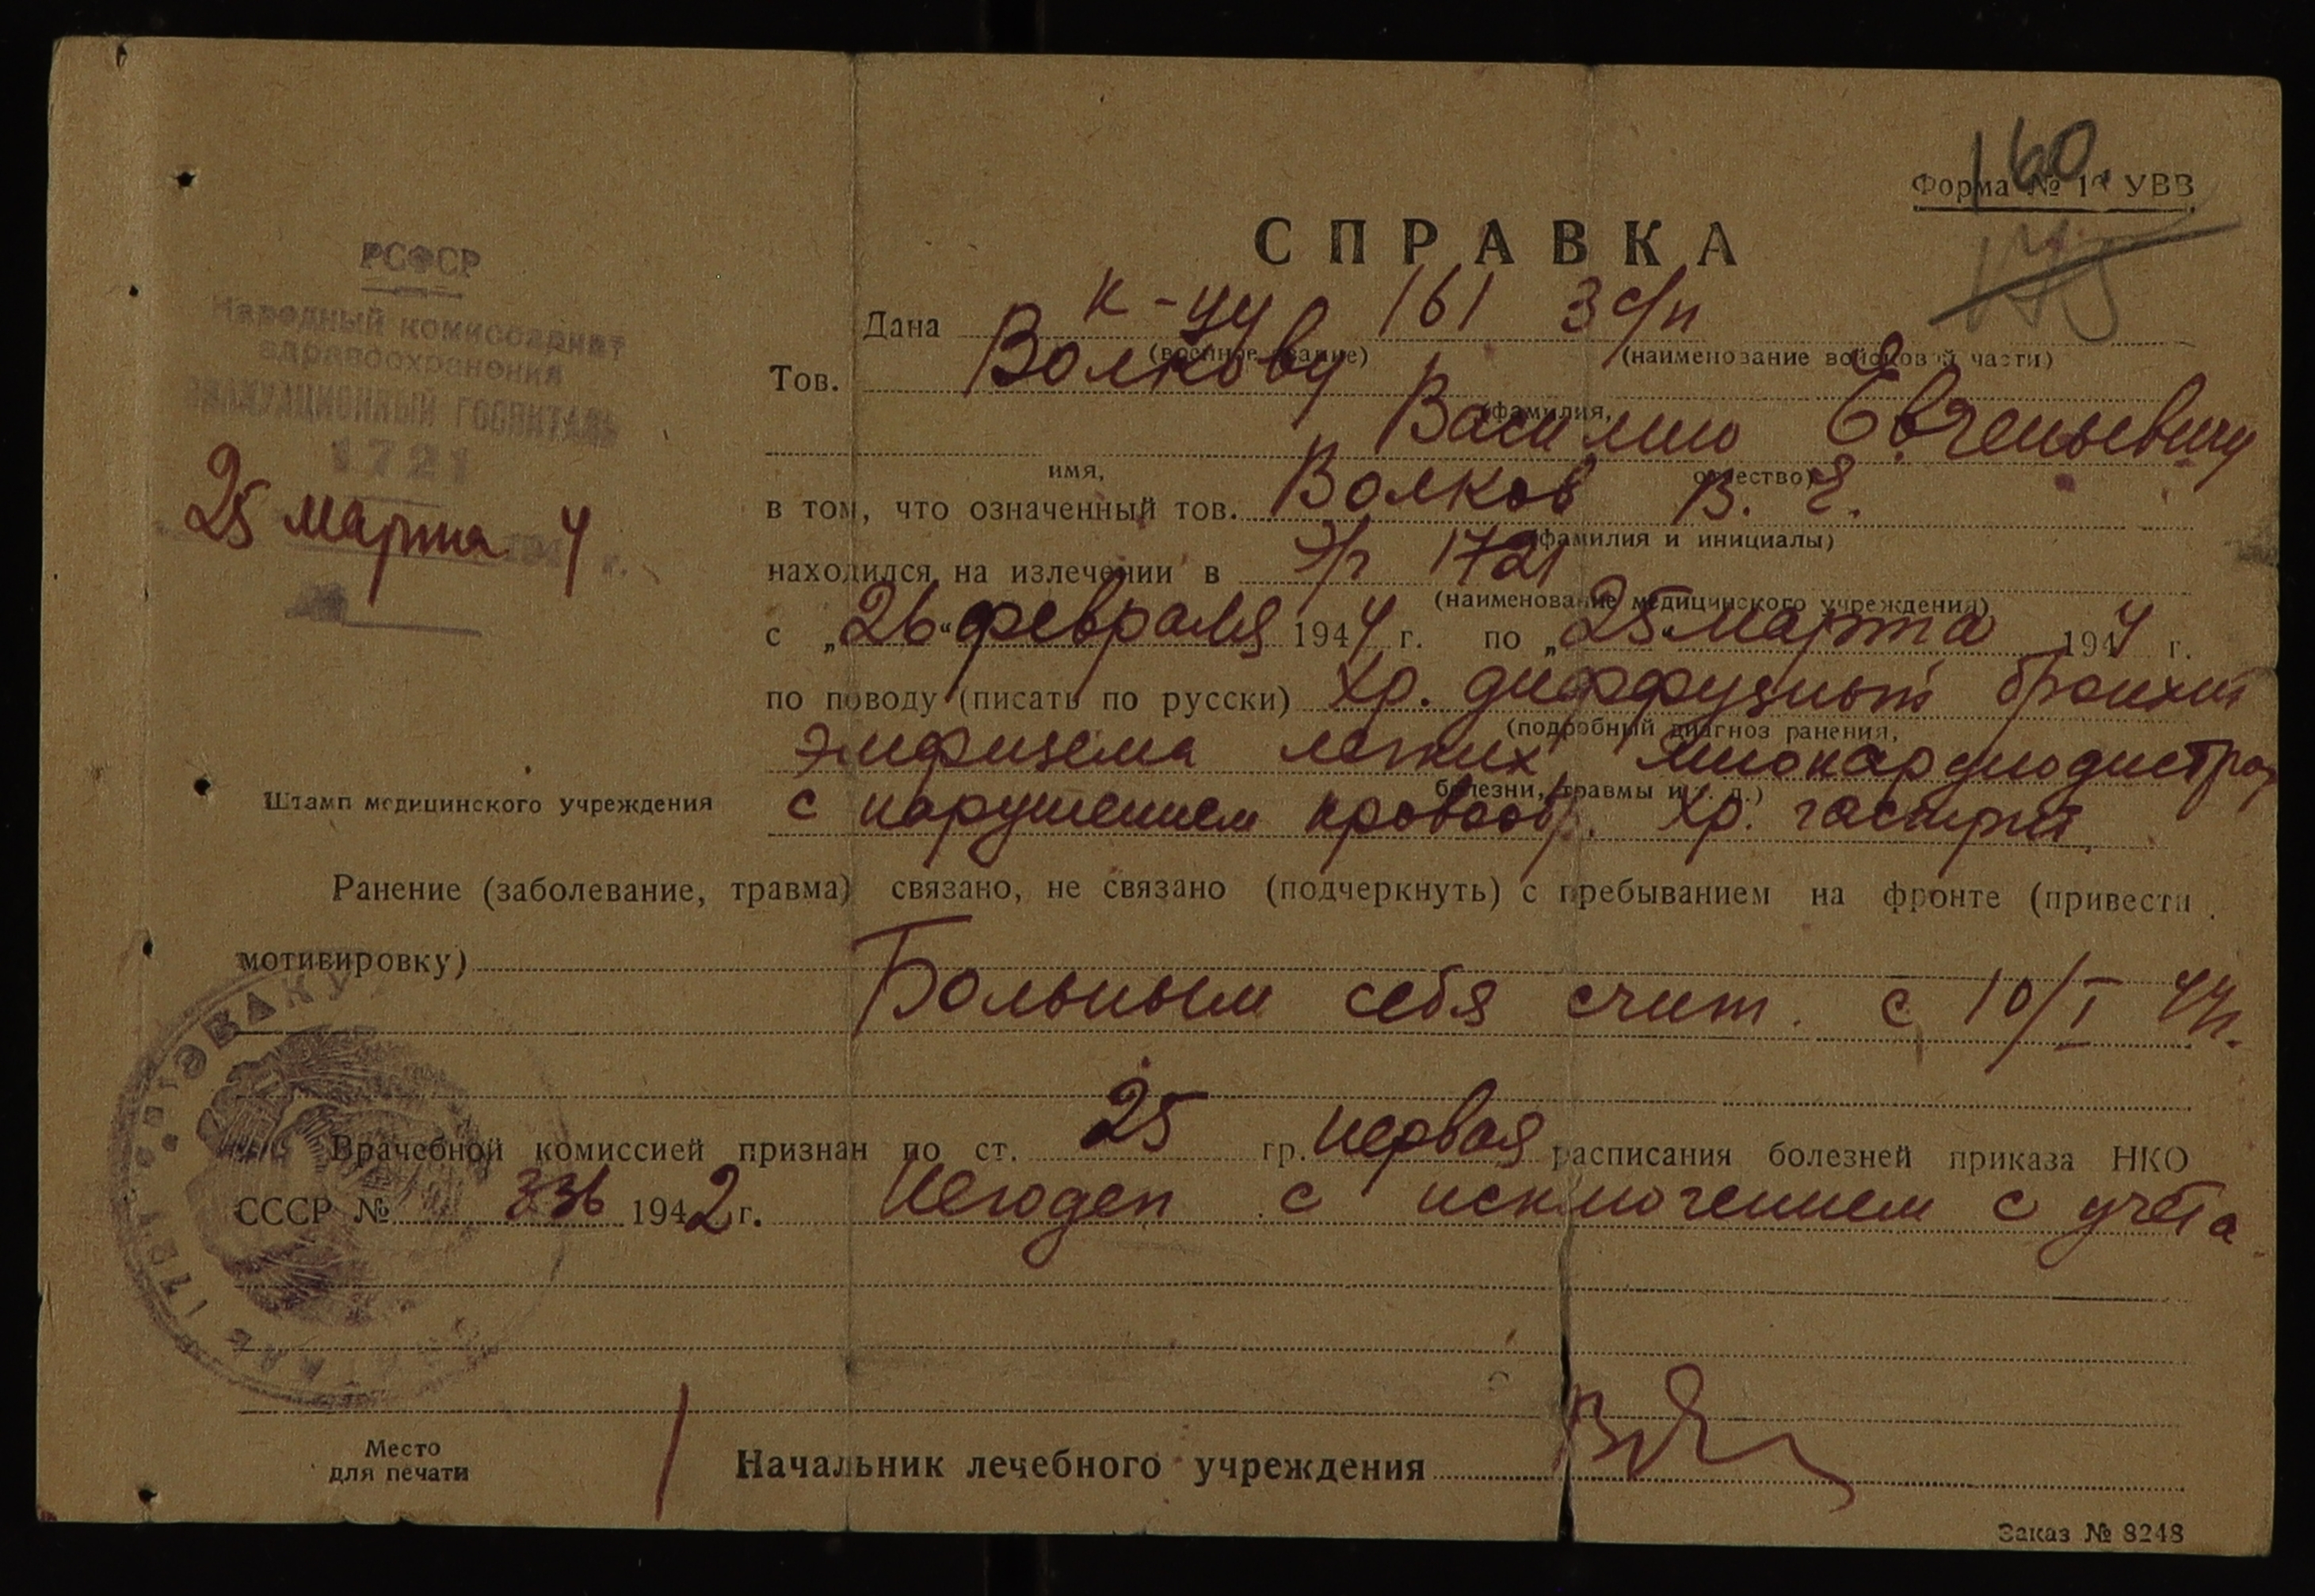 160.
Форма № 16 УВВ
175
СПРАВКА
РСФСР
Народный комиссариат
здравоохранения
ЭВАКУАЦИОННЫЙ ГОСПИТАЛЬ
1721
25 марта 194 4 г.
Дана к-цу 161 З с/п
(военное звание) (наименование войсковой части)
Тов. Волкову
(фамилия,
Василию Евгеньевичу
имя, отчество)
в том, что означенный тов. Волков В. Е.
(фамилия и инициалы)
находился на излечении в э/г 1721
(наименование медицинского учреждения)
с „26“ февраля 1944 г. по „25“ марта 1944 г.
по поводу (писать по русски) Хр. диффузный бронхит
(подробный диагноз ранения,
эмфизема легких, миокардиодистроф
болезни, травмы и т. д.)
с нарушением кровооб. Хр. гастрит.
Штамп медицинского учреждения
Ранение (заболевание, травма) связано, не связано (подчеркнуть) с пребыванием на фронте (привести
мотивировку)
Больным себя счит. с 10/I 44г.
Врачебной комиссией признан по ст. 25 гр. первая расписания болезней приказа НКО
СССР № 336 1942 г. Негоден с исключением с учёта
Место
для печати
Начальник лечебного учреждения
Заказ № 8248